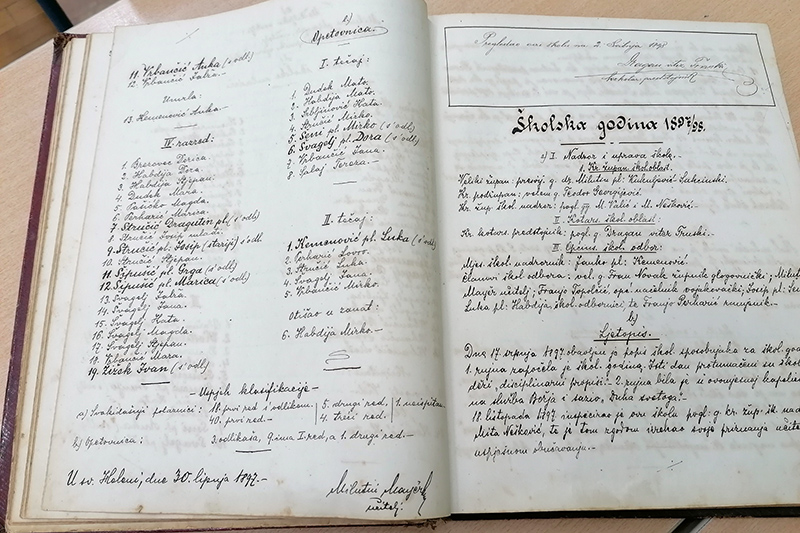 11. Vrbančić Anka (s odl)
12. Vrbančić Jalža.
Umrla:
13. Kemenović Anka.-
IV. razred:
1. Brezovec Terica.
2. Habdija Dora.
3. Habdija Stjepan.
4. Dudek Mara
5. Vašičko Magda.
6. Perharić Marica.
7. Stručić Dragutin pl. (s odl)
8. Stručić Josip mlađi
9. Stručić pl. Josip (stariji) s odl
10. Stručić Stjepan.
11. Šipušić pl. Grga (s odl)
12. Šipušić pl. Marica (s odl)
13. Švagelj Jalža.
14. Švagelj Jana.
15. Švagelj Kata
16. Švagelj Magda.
17. Švagelj Stjepan.
18. Vrbančić Mara.
19. Žižek Ivan (s odl)
2)
Opetovnica:
I. tečaj:
1. Dudek Mato.
2. Habdija Mato.
3. Kata.
4. Stručić Mirko.
5. Šeni pl. Mirko (s odl)
6. Švagelj pl. Dora (s odl)
7. Vrbančić Jana.
8. Salaj Tereza.-
II. tečaj:
1. Kemenović pl. Luka (s odl)
2. Perharić Lovro.
3. Stručić Luka.
4. Švagelj Jana.
5. Vrbančić Mirko.
Otišao u zanat:
6. Habdija Mirko.-
- Uspjeh klasifikacije -
a) Svakidašnji polaznici: 11 prvi red s odlikom. 5. drugi red, 1. neispitan
40. prvi red.- 4. treći red.
b) Opetovnica: 3 odlikaša, 9 ima I. red, a 1. drugi red.-
U sv. Heleni, dne 30. lipnja 1897.-
Milutin Mayer
učitelj.
Pregledao ovu školu na 2. 1898
Dragan vitez
kotarski predstojnik
Školska godina 1897/98.
a) I. Nadzor i uprava škole.-
1. Kr. župan. škol. oblast.
Veliki župan: presvj. g. dr. Milutin pl. Kukuljević Sakcinski.
Kr. podžupan: velem. g. Teodor Georgijević
Kr. žup. škol. nadzor: pogl. gg. M. Varlić i M. Nešković.
II. Kotars. škol. oblast:
Kr. kotars. predstojnik: pogl. g. Dragan vitez Truski.-
III. Općins. školi odbor:
Mjes. škol. nadzornik: Janko pl. Kemenović
Članovi škol. odbora: vel. g. Fran Novak župnik glogovnički;
Mayer učitelj; Franjo Topolčić opć. načelnik vojakovački; Josip pl.
Luka pl. Habdija, škol. odbornici, te Franjo Perharić razumnik.-
b)
Ljetopis.
Dne 17. srpnja 1897. obavljen je popis školi sposobnjaka za škol. god.
1. rujna započela je škol. godina. Isti dan protumačeni su
disciplinarni propisi.- 2. rujna bila je u ovomjesnoj kapelici
sv. služba Božja i zaziv, Duha svetoga.-
11 listopada 1897. nuspecirao je ovu školu pogl: g. kr. žup. šk. nad.
Mita Nešković, te je tom zgodom izrekao svoje priznanje
uspješnom obučavanju.-